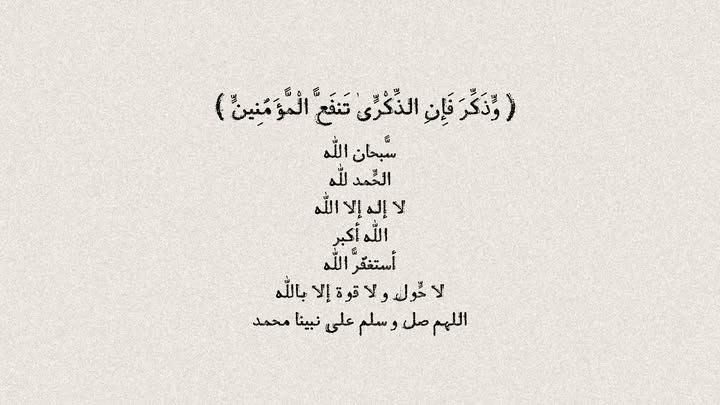 ( وَّذَكِّرَ فَإِنِ الذِّكْرِّىٰ تَنفَعُّ الْمَُّؤَمُنِينٍّ )
سَُّبحان الله
الحِّمد لله
لا إله إلا الله
الله أكبر
أستغفّرَُّ الله
لا حِّول و لا قوة إلا بالله
اللهم صل و سلم على نبينا محمد